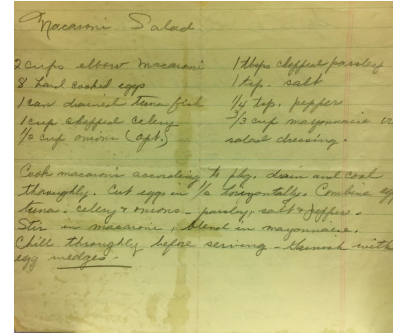 Macaroni Salad
2 cups elbow macaroni
8 hard cooked eggs
1 can drained tuna fish
1 cup chopped celery
1/2 cup onions (opt.)
1 tbsps chopped parsley
1 tsp. salt
1/4 tsp. pepper
2/3 cup mayonnaise or
salad dressing.
Cook macaroni according to pkg. drain and cool
thoroughly. Cut eggs in 1/2 horizontally. Combine egg
tuna - celery & onions - parsley, salt & pepper.
Stir in macaroni, blend in mayonnaise.
Chill throughly before serving - Garnish with
egg wedges.